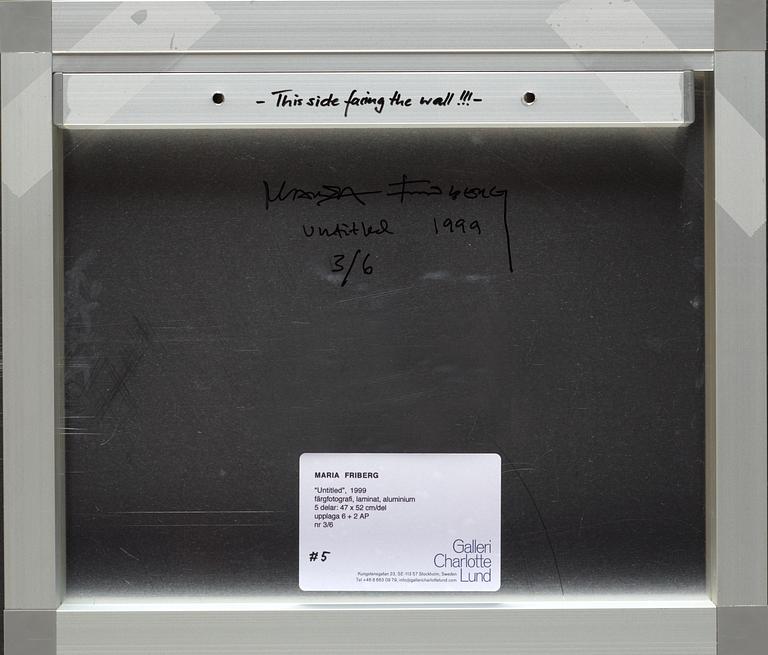 - This side facing the wall !!! -
MARIA FRIBERG
Untitled 1999
3/6
MARIA FRIBERG
"Untitled", 1999
färgfotografi, laminat, aluminium
5 delar: 47 x 52 cm/del
upplaga 6 + 2 AP
nr 3/6
#5
Galleri
Charlotte
Lund
Kungstensgatan 23, SE-113 57 Stockholm, Sweden
Tel +46 8 663 09 79, info@gallericharlottelund.com